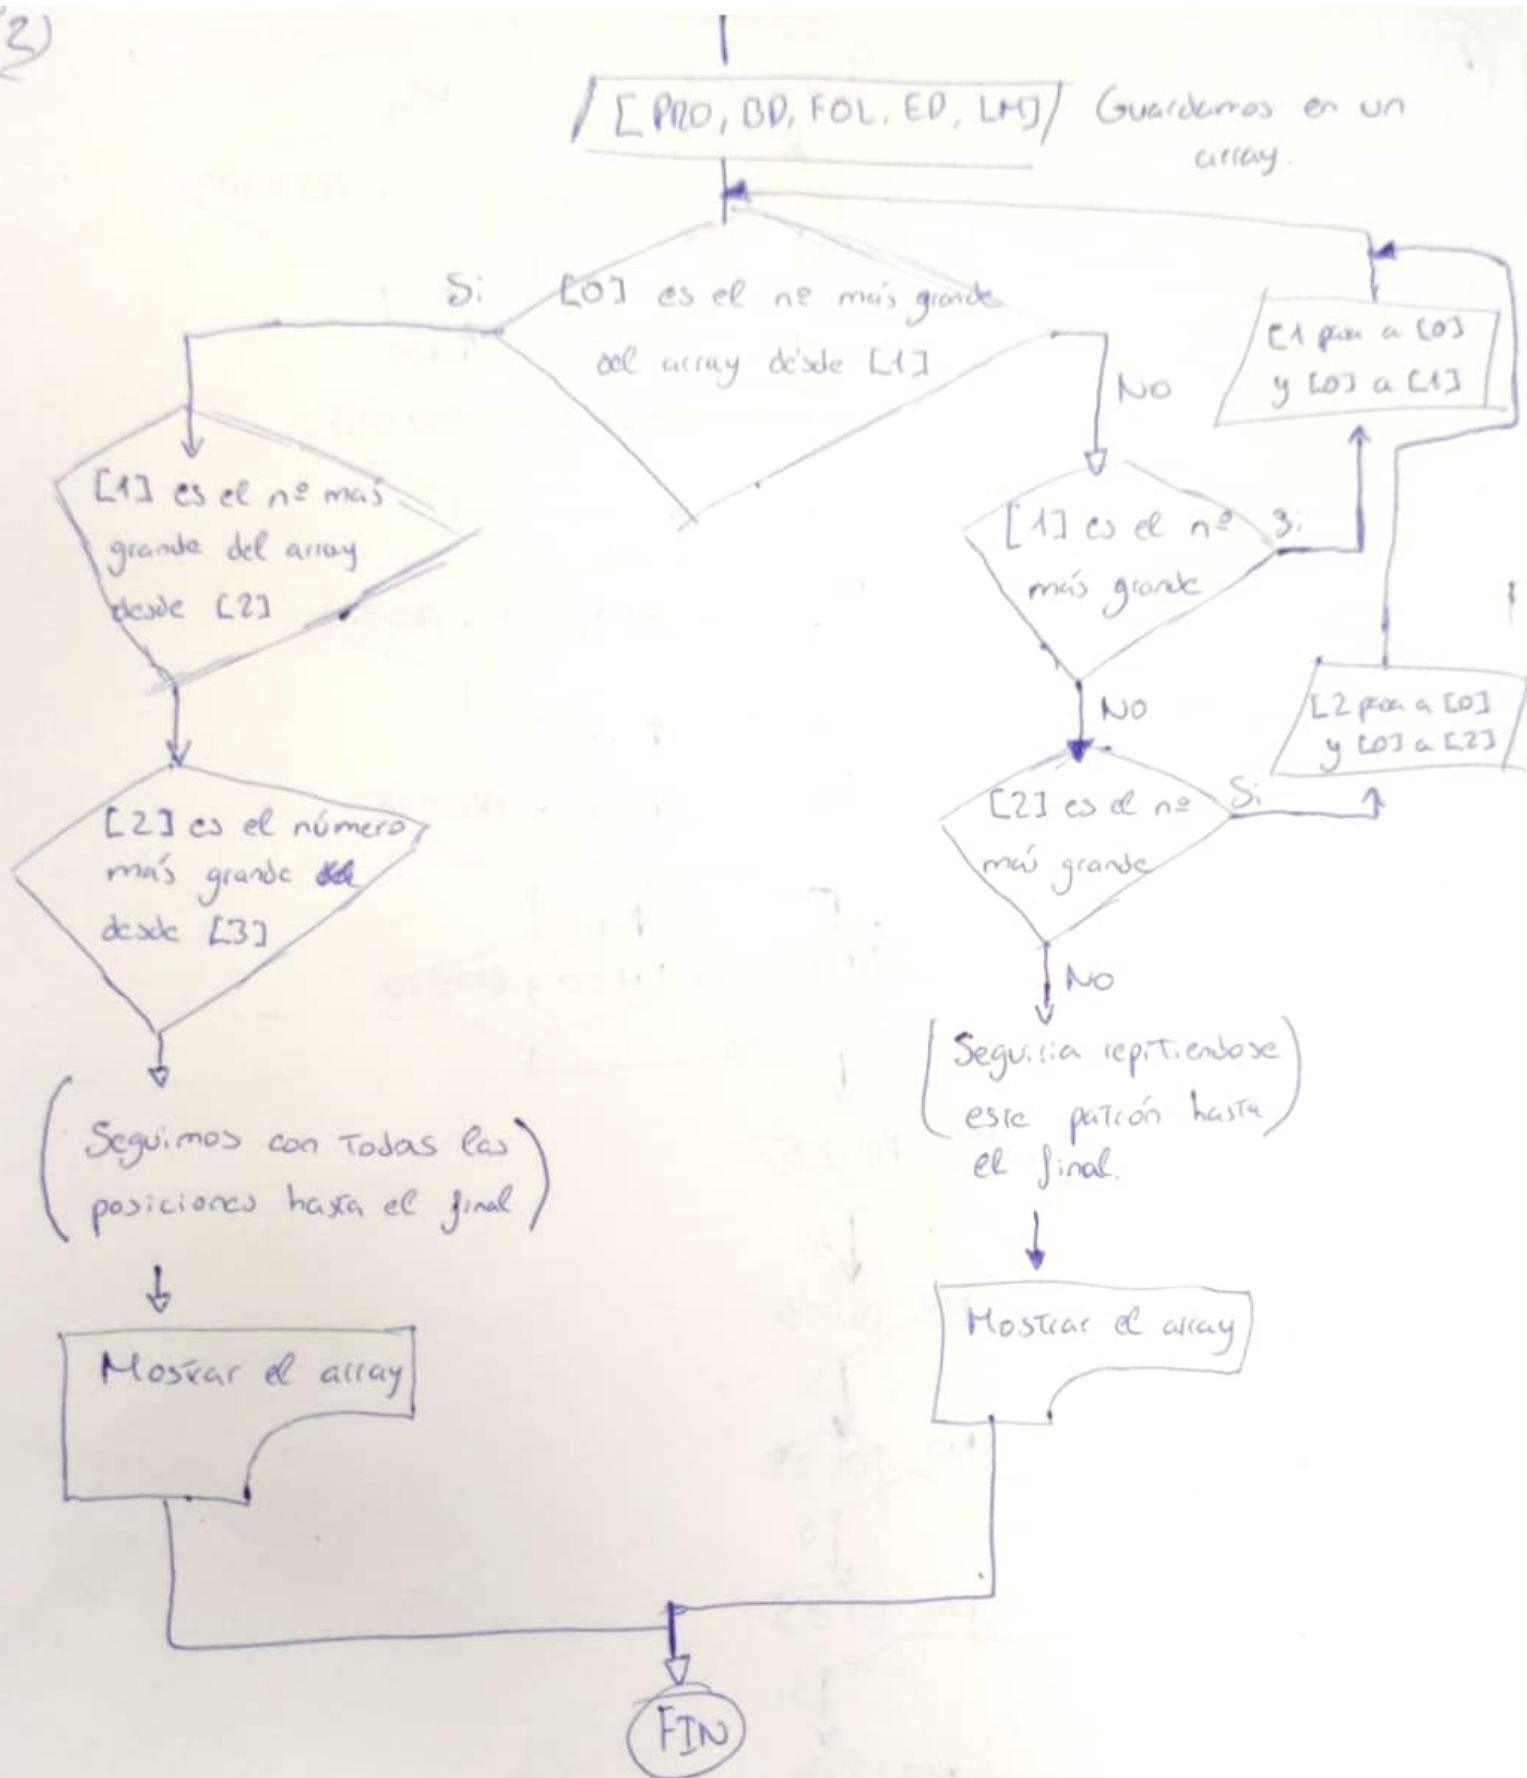 2)
[PRO, BD, FOL, ED, LM] Guardamos en un
array.
Si
[0] es el nº más grande
del array desde [1]
NO
[1 pasa a [0]
y [0] a [1]
[1] es el nº más
grande del array
desde [2]
[1] es el nº
más grande
Si
NO
[2 pasa a [0]
y [0] a [2]
[2] es el número
más grande
desde [3]
[2] es el nº
más grande
Si
NO
(Seguiria repitiendose
este patrón hasta)
el final.
(Seguimos con todas las
posiciones hasta el final)
Mostrar el array
Mostrar el array
FIN